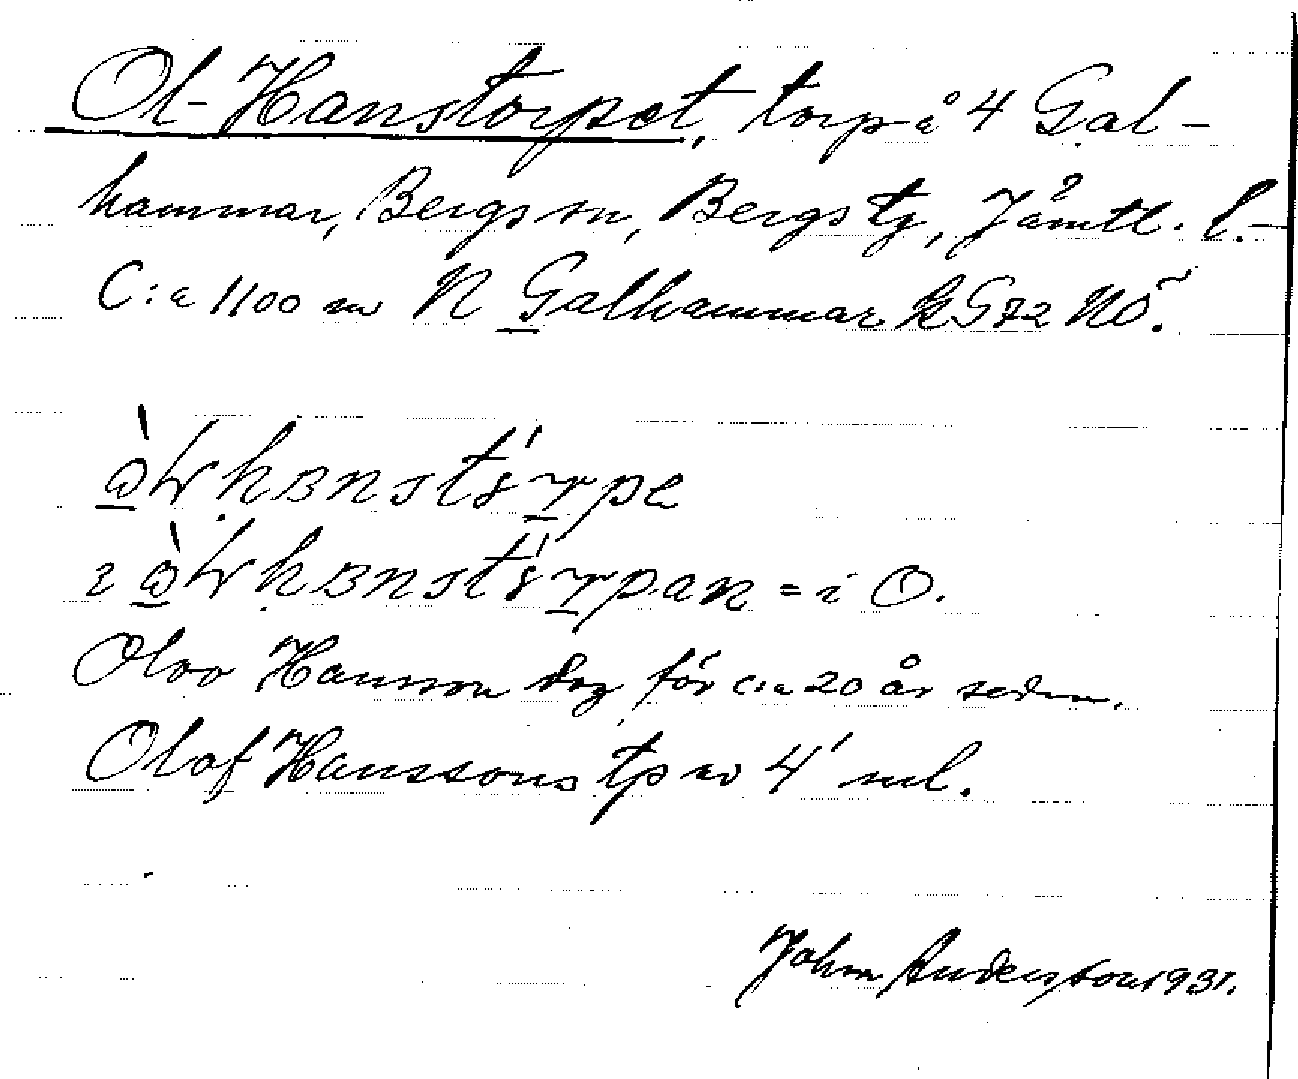 Ol-Hanstorpet, torp å 4 Gal-
hammar, Bergs sn, Bergs tg, Jämtl. l.
C:a 1100 m N Galhammar k G 72 NÖ.
Olov Hansson dog för c:a 20 år sedan.
Olof Hanssons tp av 4' ml.
John Andersson 1931.